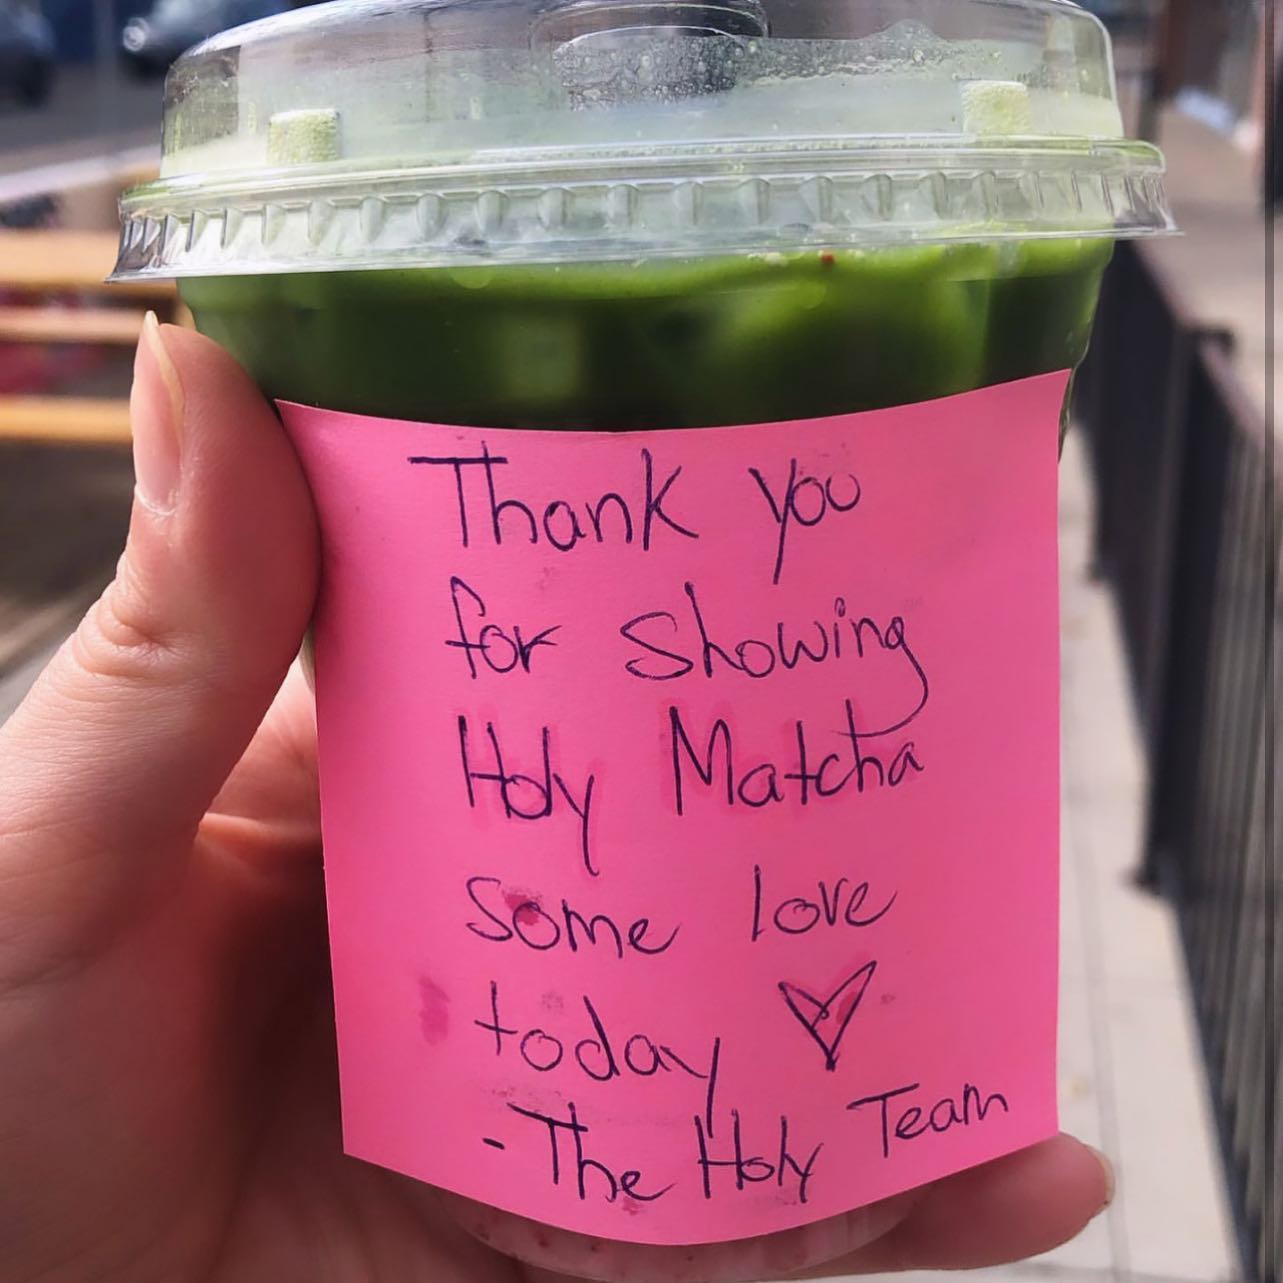 Thank you
for showing
Holy Matcha
some love
today ♡
- The Holy Team